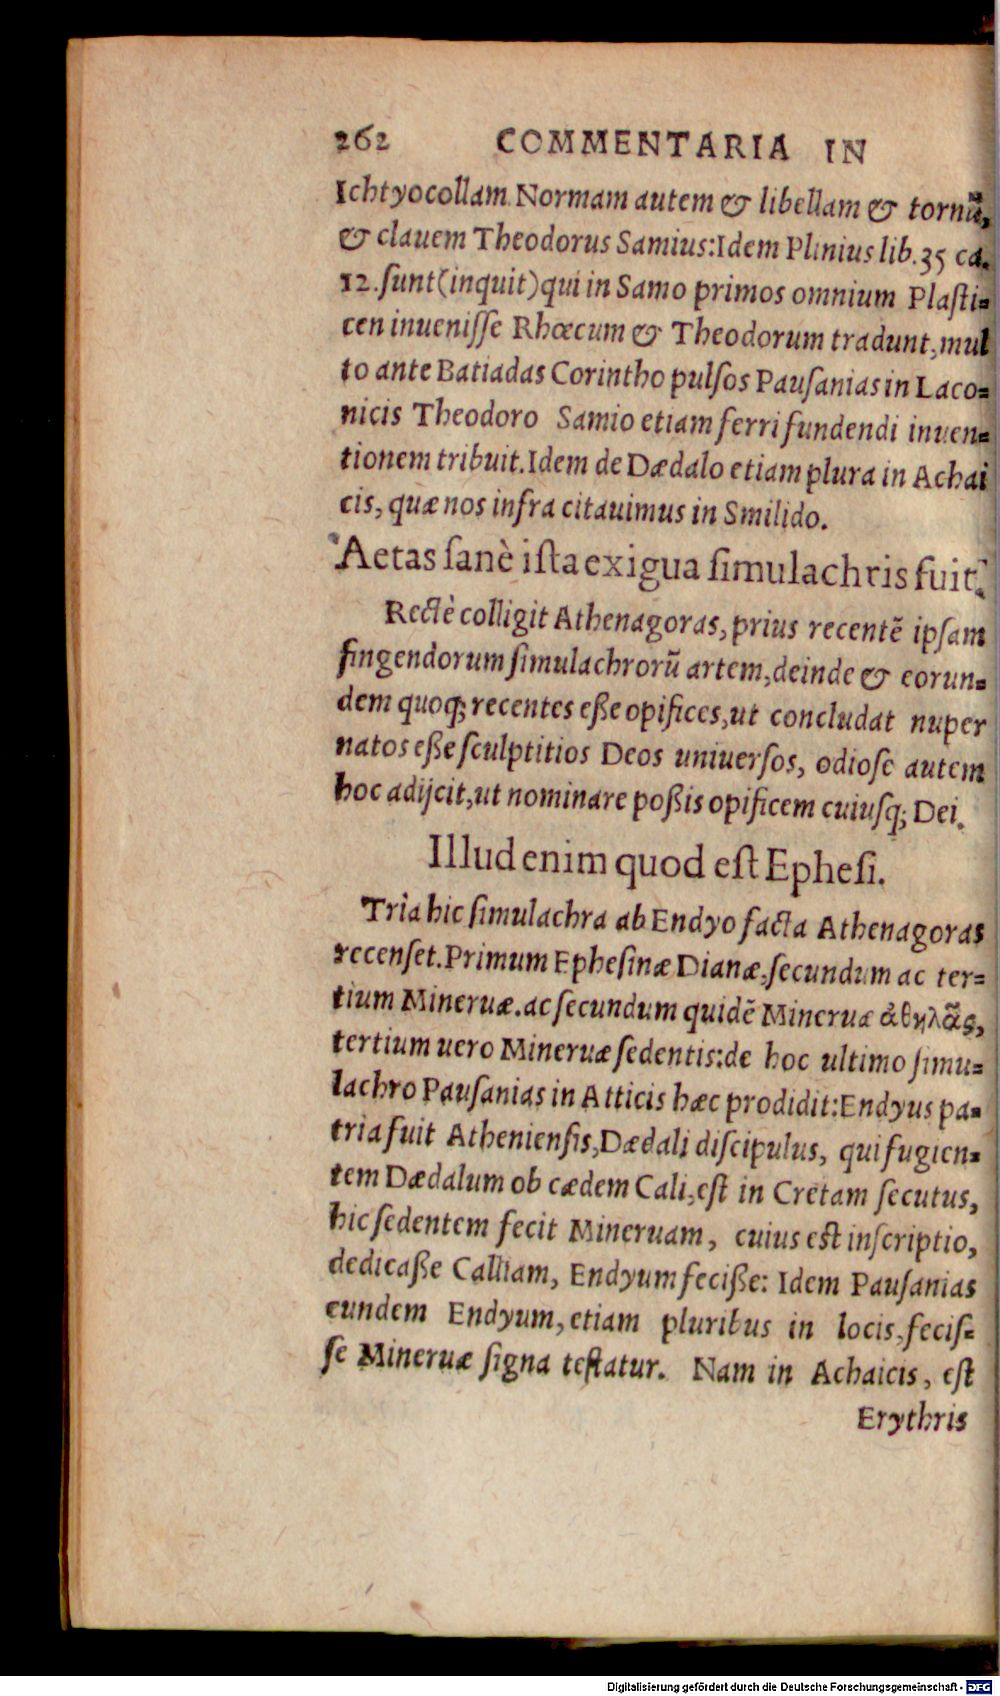 262 COMMENTARIA IN
Ichtyocollam. Normam autem & libellam & tornũ,
& clauem Theodorus Samius: Idem Plinius lib. 35 ca.
12. ſunt (inquit) qui in Samo primos omnium Plaſti-
cen inueniſſe Rhœcum & Theodorum tradunt, mul
to ante Batiadas Corintho pulſos Pauſanias in Laco-
nicis Theodoro Samio etiam ferri fundendi inuen-
tionem tribuit. Idem de Dædalo etiam plura in Achai
cis, quæ nos infra citauimus in Smilido.
Aetas ſanè iſta exigua ſimulachris fuit.
Rectè colligit Athenagoras, prius recentẽ ipſam
fingendorum ſimulachrorũ artem, deinde & eorun-
dem quoq; recentes eße opifices, ut concludat nuper
natos eße ſculptitios Deos uniuerſos, odioſe autem
hoc adijcit, ut nominare poßis opificem cuiuſq; Dei.
Illud enim quod eſt Epheſi.
Tria hic ſimulachra ab Endyo facta Athenagoras
recenſet. Primum Epheſinæ Dianæ, ſecundum ac ter-
tium Mineruæ. ac ſecundum quidẽ Mineruæ ἀθηλᾶς,
tertium uero Mineruæ ſedentis: de hoc ultimo ſimu-
lachro Pauſanias in Atticis hæc prodidit: Endyus pa-
tria fuit Athenienſis, Dædali diſcipulus, qui fugien-
tem Dædalum ob cædem Cali, eſt in Cretam ſecutus,
hic ſedentem fecit Mineruam, cuius eſt inſcriptio,
dedicaße Calliam, Endyum feciße: Idem Pauſanias
eundem Endyum, etiam pluribus in locis, feciſ-
ſe Mineruæ ſigna teſtatur. Nam in Achaicis, eſt
Erythris
Digitalisierung gefördert durch die Deutsche Forschungsgemeinschaft - DFG